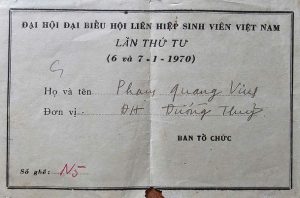 ĐẠI HỘI ĐẠI BIỂU HỘI LIÊN HIỆP SINH VIÊN VIỆT NAM
LẦN THỨ TƯ
(6 và 7-1-1970)
Họ và tên Phạm Quang Vinh
Đơn vị ĐH Đường Thuỷ
BAN TỔ CHỨC
Số ghế: N5